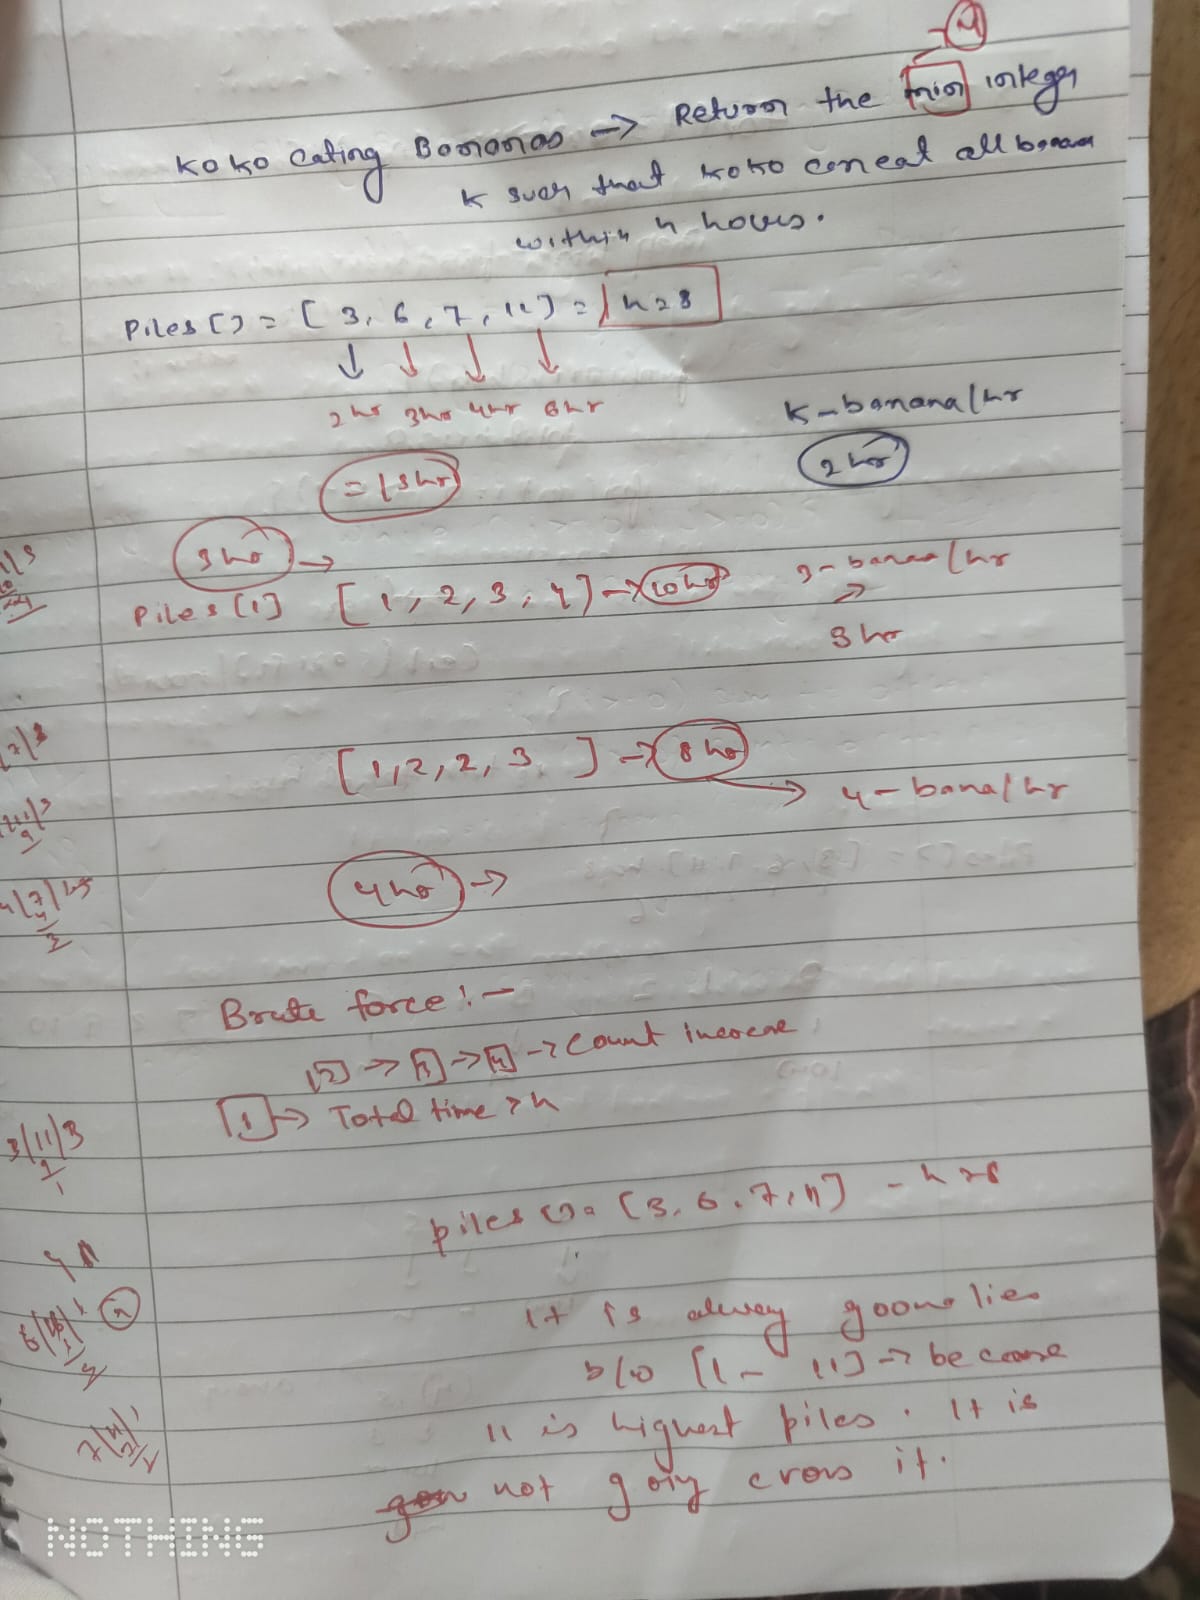 4
Koko eating Bananas -> Return the min integer
K such that koko can eat all banana
within h hours.
Piles[] = [3, 6, 7, 11] = h=8
2hr 3hr 4hr 6hr
K-banana/hr
=15hr
2hr
3hr ->
3-banana/hr
Piles[] [1, 2, 3, 4] -> 10hr
3hr
[1, 2, 2, 3 ] -> 8hr
-> 4-bana/hr
4hr ->
Brute force:-
[2] -> [3] -> [4] -> count increase
[1] -> Total time > h
3|11|3
9
piles[]= [3, 6, 7, 11] - h=8
It is alway goona lies
b/w [1 - 11] -> because
11 is highest piles. It is
not goiy cross it.
NOTHING